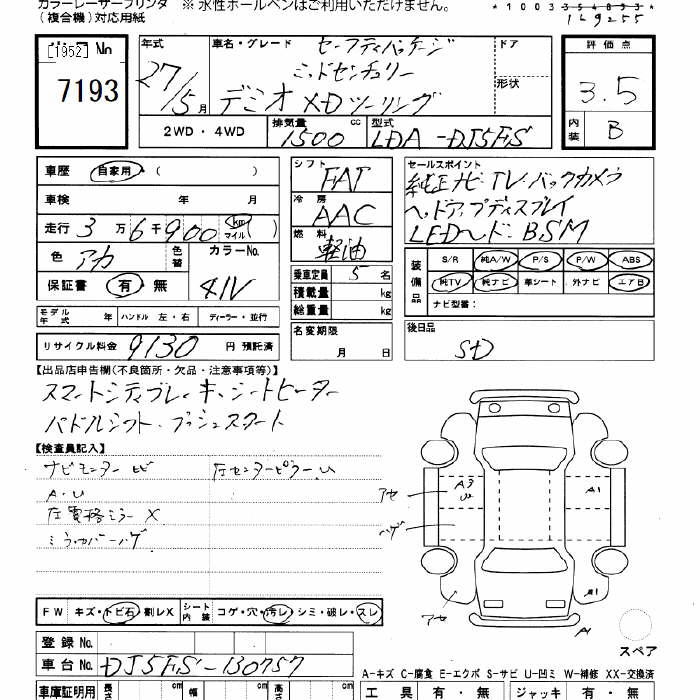 カラーレーザープリンタ ※ 水性ボールペンはご利用いただけません。
（複合機）対応用紙
[1952] No
7193
年式 27/5月
車名・グレード セーフティパッケージ
ミッドセンチュリー
デミオ XDツーリング
ドア
形状
評価点
3.5
内装 B
2WD・4WD
排気量 1500 cc
型式 LDA-DJ5FS
車歴 自家用 ( )
車検 年 月
走行 3万6千900 (km マイル)
色 アカ 色替
カラーNo. 41V
保証書 有・無
モデル年式 年 ハンドル 左・右 ディーラー・並行
リサイクル料金 9130 円 預託済
シフト FAT
冷房 AAC
燃料 軽油
乗車定員 5 名
積載量 kg
総重量 kg
名変期限
月 日
セールスポイント
純正ナビ・TV・バックカメラ
ヘッドアップディスプレイ
LEDヘッド・BSM
装備品
S/R 純A/W P/S P/W ABS
純TV 純ナビ 革シート 外ナビ エアB
ナビ型番：
後日品
SD
【出品店申告欄(不良箇所・欠品・注意事項等)】
スマートシティブレーキ・シートヒーター
パドルシフト・プッシュスタート
【検査員記入】
ナビモニターヒビ 左センターピラーU
A・U
ミラーカバーハゲ
アセ
ハゲ
アセ
A3
U
A1
A1
A
スペア
FW キズ・トビ石・割レX シート内装 コゲ・穴・汚レ・シミ・破レ・スレ
登録 No.
車台 No. DJ5FS-130757
A-キズ C-腐食 E-エクボ S-サビ U-凹ミ W-補修 XX-交換済
車庫証明用 長さ cm 幅 cm 高さ cm
工具 有・無 ジャッキ 有・無